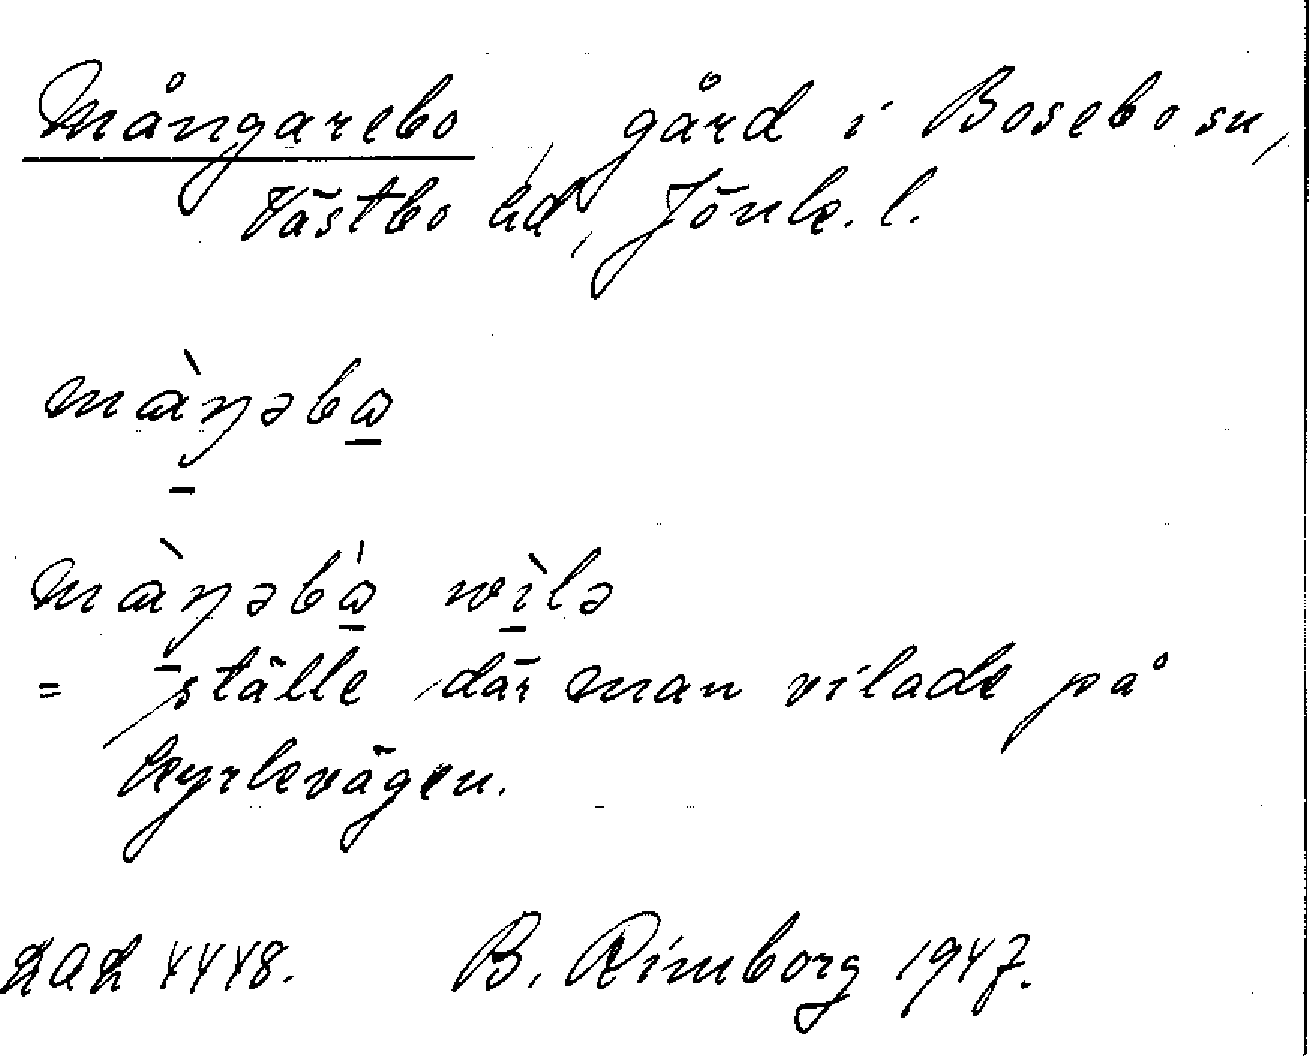 Mångarebo, gård i Bosebo sn,
Västbo hd, Jönk. l.
màŋəbω
màŋəbώ wìlə
= ställe där man vilade på
kyrkevägen.
LAL 4448. B. Rimborg 1947.